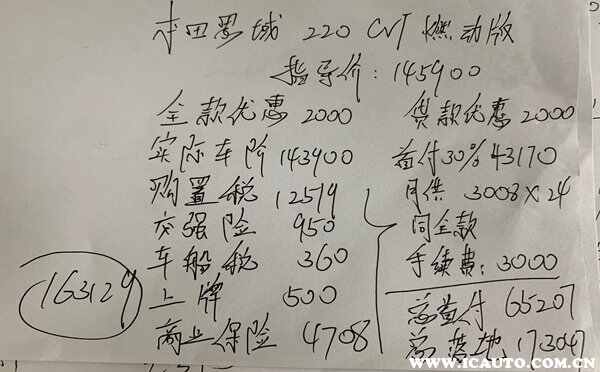 本田思域 220 CVT 燃动版
指导价:145900
全款优惠 2000
实际车价 143900
购置税 12519
交强险 950
车船税 360
上牌 500
商业保险 4708
163129
贷款优惠 2000
首付30% 43170
月供 3008×24
同全款
手续费:3000
总首付 65207
总落地 173047
www.icauto.com.cn